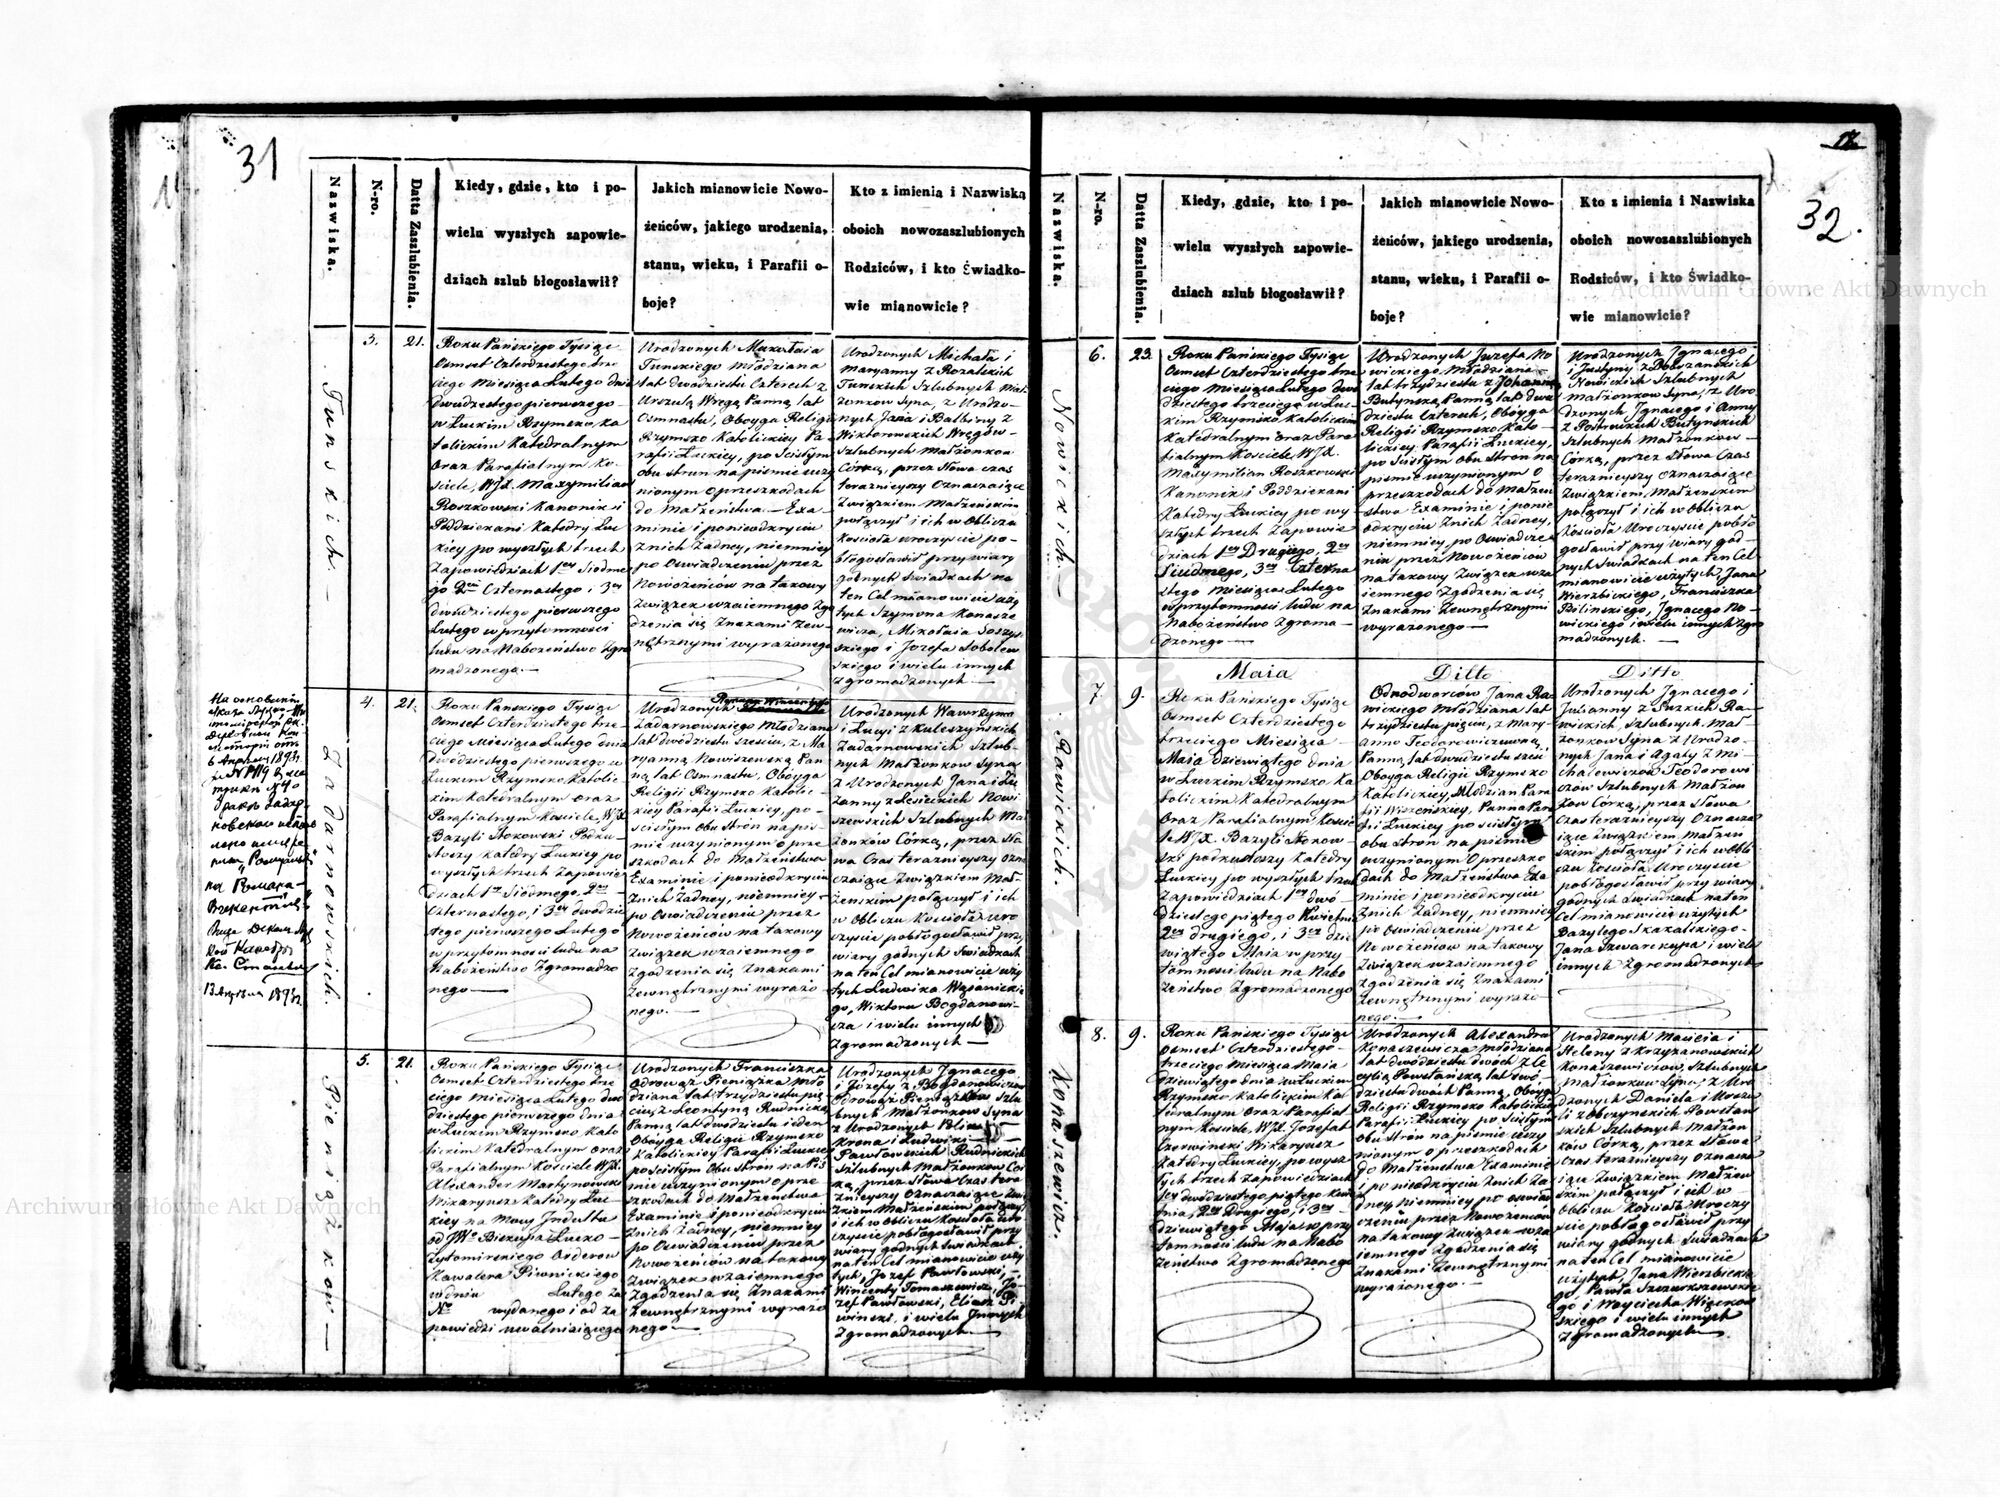 31
Nazwiska.
N-ro.
Datta Zaszlubienia.
Kiedy, gdzie, kto i po-
wielu wyszłych zapowie-
dziach szlub błogosławił?
Jakich mianowicie Nowo-
żeńców, jakiego urodzenia,
stanu, wieku, i Parafii o-
boje?
Kto z imienia i Nazwiska
oboich nowozaszlubionych
Rodziców, i kto Świadko-
wie mianowicie?
Tunskich.
3.
21.
Roku Pańskiego Tysiąc
Osmset Czterdziestego trze
ciego Miesiąca Lutego dnia
dwudziestego pierwszego
w Łuckim Rzymsko Ka
tolickim Katedralnym
oraz Parafialnym Ko-
ściele, WJX. Maxymilian
Roszkowski Kanonik i
Poddziekani Katedry Łuc
kiey po wyszłych trzech
Zapowiedziach 1ey Siodme
go 2ey Czternastego i 3ey
dwudziestego pierwszego
Lutego w przytomności
ludu na Nabożeństwo Zgro
madzonego.—
Urodzonych
Tunskiego Młodziana
lat dwudziestu Czterech z
Urszulą Wręgą Panną lat
Osmnastu, Oboyga Religii
Rzymsko Katolickiey Pa-
rafii Łuckiey, po Scisłym
obu stron na piśmie uczy
nionym o przeszkodach
do Małżeństwa Exa-
minie i poniewdkryciu
Znich Żadney, niemniey
po Oswiadczeniu przez
Nowożeńców na takowy
Związek wzaiemnego Zgo
dzenia się Znakami Zew-
nętrznymi wyrażonego
Urodzonych Michała i
Maryanny z Rozalskich
Tunskich Szlubnych Mał
żonkow Syna, z Urodzo-
nych Jana i Balbiny z
Wiktorowskich Wręgów
Szlubnych Małżonkow
Córką, przez Słowa czas
teraznieyszy Oznaczaiące
Związkiem Małżeńskim
połączył i ich w Obliczu
Kościoła uroczyście po-
błogosławił przy wiary
godnych Świadkach na
ten Cel mianowicie uży
tych Szymona Konasze
wicza, Mikołaia Soszyn
skiego i Jozefa Sobolew
skiego i wielu innych
Zgromadzonych.—
Zadarnowskich.
4.
21.
Roku Pańskiego Tysiąc
Osmset Czterdziestego trze-
ciego Miesiąca Lutego dnia
dwudziestego pierwszego w
Łuckim Rzymsko Katolic-
kim Katedralnym oraz
Parafialnym Kościele, WJX.
Bazyli Nokowski Podku-
stoszy Katedry Łuckiey po
wyszłych trzech Zapowie-
dziach 1ey Siódmego, 2ey
Czternastego, i 3ey dwudzies
tego pierwszego Lutego
w przytomnosci ludu na
Nabożeństwo Zgromadzo
nego—
Urodzonych
Zadarnowskiego Młodziana
lat dwudziestu sześciu, z Ma
ryanną Nowiszewską Pan
ną, lat Osmnastu, Oboyga
Religii Rzymsko Katolic-
kiey Parafii Łuckiey, po-
scisłym Obu Strón na piś-
mie uczynionym o prze
szkodach do Małżeństwa
Examinie i poniewdkryciu
Znich Żadney, niemniey
po Oswiadczeniu przez
Nowożeńców na takowy
Związek wzaiemnego
Zgodzenia się Znakami
Zewnętrznymi wyrażo-
nego.—
Urodzonych Wawrzyna
i Łucyi z Kuleszyńskich
Zadarnowskich Szlub-
nych Małżonkow Syna,
z Urodzonych Jana i Zu
zanny z Lesieckich Nowi
szewskich Szlubnych Mał
żonkow Córką, przez Sło
wa Czas teraznieyszy ozna
czaiące Związkiem Mał-
żenskim połączył i ich
w Obliczu Kościoła uro
czyście pobłogosławił przy
wiary godnych Świadkach
na ten Cel mianowicie uży
tych Ludwika
go, Wiktora Bogdanowi-
cza i wielu innych
Zgromadzonych—
6 Апреля 1893г.
13 Апреля 1893г.
Pieniążkow—
5.
21.
Roku Pańskiego Tysiąc
Osmset Czterdziestego trze
ciego Miesiąca Lutego dwu
dziestego pierwszego dnia
w Łuckim Rzymsko Kato
lickim Katedralnym oraz
Parafialnym Kościele WJX.
Alexander Martynowski
Wikaryusz Katedry Łuc-
kiey na Mocy Indultu
od JWo Biskupa Łucko-
Żytomirskiego Orderow
Kawalera Piwnickiego
w dniu Lutego za
No wydanego i od za
powiedzi uwalniaiącego
Urodzonych Franciszka
Odrowąż Pieniążka Mło
dziana lat trzydziestu pię
ciu z Leontyną Rudnicką
Panną lat dwudziestu ieden
Oboyga Religii Rzymsko
Katolickiey Parafii Łuckiey
po scisłym Obu Strón na piś
mie uczynionym o prze
szkodach do Małżeństwa
Examinie i poniewdkryciu
Znich Żadney, niemniey
po Oswiadczeniu przez
Nowożeńców na takowy
Związek wzaiemnego
Zgodzenia się Znakami
Zewnętrznymi wyrażo
nego—
Urodzonych Ignacego
i Józefy z Bogdanowiczow
Odrowąż Pieniążkow Szlu
bnych Małżonkow Syna
z Urodzonych
i Ludwiki
Pawłowskich Rudnickich
Szlubnych Małżonkow Cór
ką, przez Słowa Czas tera
znieyszy Oznaczaiące Zwią
zkiem Małżeńskim połączył
i ich w Obliczu Kościoła uro
czyście pobłogosławił przy
wiary godnych Świadkach
na ten Cel mianowicie uży
tych, Jozef Pawłowski,
Wincenty Tomaszewicz, Jó-
zef Pawłowski, Eliasz Pi-
winski, i wielu Innych
Zgromadzonych—
12
32.
Nazwiska.
N-ro.
Datta Zaszlubienia.
Kiedy, gdzie, kto i po-
wielu wyszłych zapowie-
dziach szlub błogosławił?
Jakich mianowicie Nowo-
żeńców, jakiego urodzenia,
stanu, wieku, i Parafii o-
boje?
Kto z imienia i Nazwiska
oboich nowozaszlubionych
Rodziców, i kto Świadko-
wie mianowicie?
Nowickich—
6.
23
Roku Pańskiego Tysiąc
Osmset Czterdziestego trze
ciego Miesiąca Lutego dwu
dziestego trzeciego w Łuc-
kim Rzymsko Katolickim
Katedralnym oraz Para
fialnym Kościele WJX.
Maxymilian Roszkowski
Kanonik i Poddziekani
Katedry Łuckiey po wy
szłych trzech Zapowie
dziach 1ey Drugiego, 2ey
Siudmego, 3ey Czterna
stego Miesiąca Lutego
w przytomności ludu na
Nabożeństwo Zgroma-
dzonego—
Urodzonych Jozefa No
wickiego Młodziana
lat trzydziestu z Johanną
Butynską Panną lat dwu
dziestu Czterech, Oboyga
Religii Rzymsko Kato-
lickiey Parafii Łuckiey,
po Scisłym Obu Stron na
piśmie uczynionym O
przeszkodach do Małżeń
stwa Examinie i ponie
odkryciu Znich Żadney,
niemniey, po Oswiadcze-
niu przez Nowożeńców
na takowy Związek wza
iemnego Zgodzenia się
Znakami Zewnętrznymi
wyrażonego—
Urodzonych Ignacego
i Justyny z
Nowickich Szlubnych
Małżonkow Syna, z Uro
dzonych Ignacego i Anny
z Butynskich
Szlubnych Małżonkow
Córką, przez Słowa Czas
teraznieyszy Oznaczaiące
Związkiem Małżenskim
połączył i ich w Obliczu
Kościoła Uroczyście pobło
gosławił przy wiary god-
nych Świadkach na ten Cel
mianowicie użytych, Jana
Wierzbickiego, Franciszka
Bilinskiego, Ignacego No-
wickiego i wielu innych Zgro
madzonych.—
Rawickich.
7.
9.
Maia
Roku Pańskiego Tysiąc
Osmset Czterdziestego
trzeciego Miesiąca
Maia dziewiątego dnia
w Łuckim Rzymsko Ka
tolickim Katedralnym
Oraz Parafialnym Koście
le WJX. Bazyli Nokow-
ski podkustoszy Katedry
Łuckiey po wyszłych trzech
Zapowiedziach 1ey dwu
dziestego piątego Kwietnia
2ey drugiego, i 3ey dzie
wiątego Maia w przy-
tomności ludu na Nabo
żeństwo Zgromadzonego
Ditto
Odnodworców Jana Ra-
wickiego Młodziana lat
trzydziestu pięciu, z Mary
anną Teodorowiczowną
Panną, lat dwudziestu sześć
Oboyga Religii Rzymsko
Katolickiey, Młodzian Para
fii, Panna Para
fii Łuckiey po scisłym
obu Strón na piśmie
uczynionym O przeszko
dach do Małżeństwa Exa
minie i poniewdkryciu
Znich Żadney, niemniey
po Oswiadczeniu przez
Nowożeńców na takowy
Związek wzaiemnego
Zgodzenia się Znakami
Zewnętrznymi wyrażo-
nego.—
Ditto
Urodzonych Ignacego i
Julianny z Ra-
wickich, Szlubnych Mał-
żonkow Syna z Urodzo-
nych Jana i Agaty z Mi-
chalewiczow Teodorowi
czow Szlubnych Małżon
kow Córką, przez Słowa
Czas teraznieyszy Oznacza
iące Związkiem Małżeń
skim połączył i ich w Obli
czu Kościoła Uroczyście
pobłogosławił przy wiary
godnych Świadkach na ten
Cel mianowicie użytych
Bazylego Skazalskiego-
Jana i wielu
innych Zgromadzonych
Konaszewicz.
8.
9.
Roku Pańskiego Tysiąc
Osmset Czterdziestego-
trzeciego Miesiąca Maia
dziewiątego dnia w Łuckim
Rzymsko Katolickim Ka-
tedralnym Oraz Parafial
nym Kościele, WJX. Jozefat
Czerwiński Wikaryusz
Katedry Łuckiey, po wysz-
łych trzech Zapowiedziach
1ey dwudziestego piątego Kwie
tnia, 2ey Drugiego, i 3ey
dziewiątego Maja w przy
tomności ludu na Nabo
żeństwo Zgromadzonego
Urodzonych Alexandra
Konaszewicza Młodziana
lat dwudziestu dwóch z Ce
cylią Powstańską lat dwu-
dziestu dwóch Panną, Oboyga
Religii Rzymsko Katolickiey
Parafii Łuckiey po Scisłym
Obu Stron na piśmie uczy
nionym o przeszkodach
do Małżeństwa Examinie
i poniewdkryciu Znich Ża-
dney Niemniey po oswiad
czeniu przez Nowożeńców
na takowy Związek wza
iemnego Zgodzenia się
Znakami Zewnętrznymi
wyrażonego.—
Urodzonych Macieia i
Heleny z Krzyżanowskich
Konaszewiczow, Szlubnych
Małżonkow Syna, z Uro
dzonych Daniela i Urszu
li z Powstań
skich Szlubnych Małżon
ków Córką, przez Słowa
Czas teraznieyszy Oznacza
iące Związkiem Małżeń
skim połączył i ich w
Obliczu Kościoła Uroczy
ście pobłogosławił przy
wiary godnych Świadkach
na ten Cel mianowicie
użytych, Jana Wierzbickie-
go, Pawła
go i Woyciecha
skiego i wielu innych
Zgromadzonych—
Archiwum Główne Akt Dawnych
Archiwum Główne Akt Dawnych